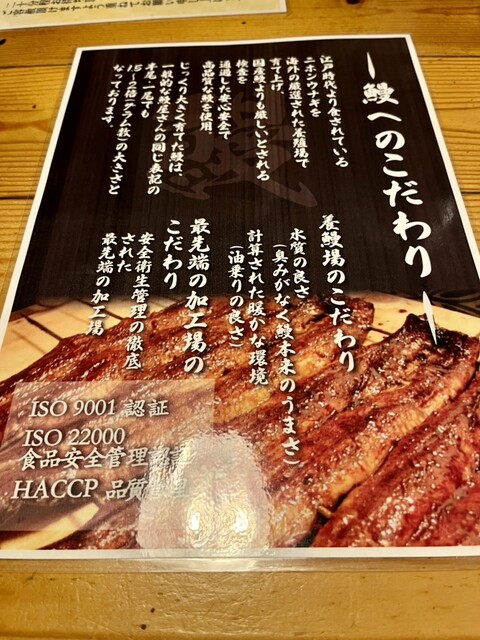 鰻へのこだわり
江戸時代より食されている
ニホンウナギを
海外の厳選された養殖場で
育て上げ
国産鰻よりも厳しいとされる
検査を
通過した安心安全で
高品質な鰻を使用。
じっくり大きく育てた鰻は、
一般的な鰻屋さんの同じ表記の
半尾、一尾でも
1.5〜2倍(グラム数)の大きさと
なっております。
養鰻場のこだわり
水質の良さ
(臭みがなく鰻本来のうまさ)
計算された暖かな環境
(油乗りの良さ)
最先端の加工場の
こだわり
安全衛生管理の徹底
された
最先端の加工場
ISO 9001 認証
ISO 22000
食品安全管理認証
HACCP 品質管理